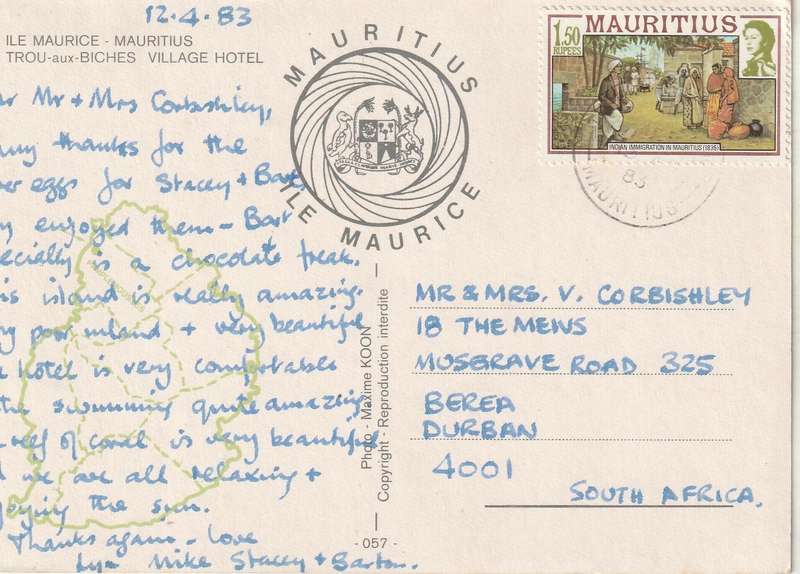 12.4.83
ILE MAURICE - MAURITIUS
TROU-aux-BICHES VILLAGE HOTEL
r Mr + Mrs Corbishley,
ny thanks for the
er eggs for Stacey + Bart,
y enjoyed them - Bart
ecially is a chocolate freak.
is island is really amazing.
y poor inland + very beautiful
hotel is very comfortable
the swimming quite amazing,
reef of coral is very beautiful
d we are all relaxing +
joying the sun.
Thanks again - love
Lyn Mike Stacey + Barton.
MAURITIUS
ILE MAURICE
Photo - Maxime KOON
Copyright - Reproduction interdite
- 057 -
1.50
RUPEES
MAURITIUS
INDIAN IMMIGRATION IN MAURITIUS (1835)
83
MAURITIUS
MR & MRS. V. CORBISHLEY
18 THE MEWS
MUSGRAVE ROAD 325
BEREA
DURBAN
4001
SOUTH AFRICA.